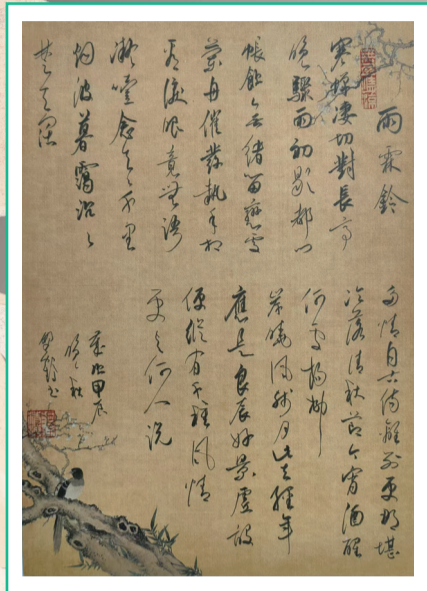 雨霖鈴
寒蟬凄切對長亭
晚驟雨初歇都门
帳飲無緒留戀處
蘭舟催發執手相
看淚眼竟無語
凝噎念去去千里
烟波暮靄沉沉
楚天闊
多情自古傷離別更那堪
冷落清秋節今宵酒醒
何處楊柳
岸曉風殘月此去經年
應是良辰好景虛設
便縱有千種風情
更與何人說
歲次甲辰
晚秋